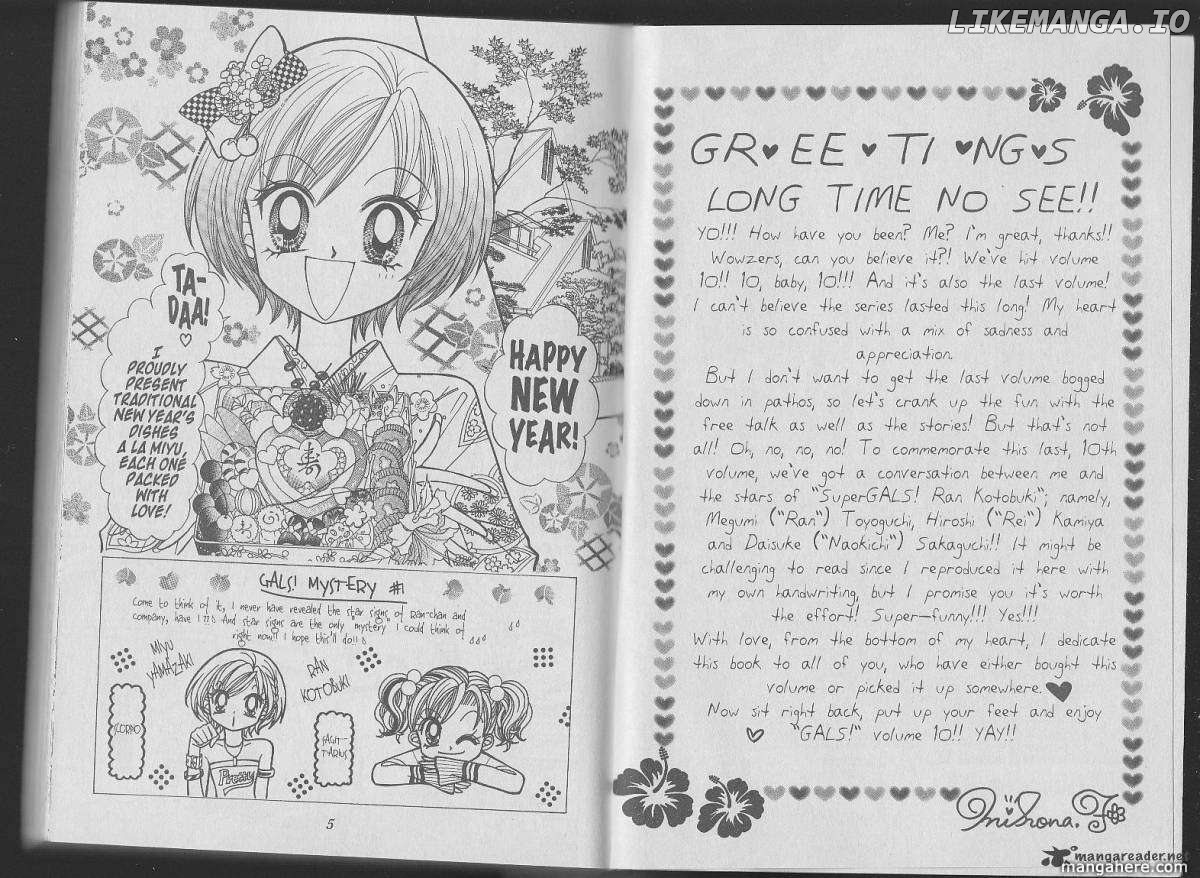 LIKEMANGA.IO
TA-
DAA!
I
PROUDLY
PRESENT
TRADITIONAL
NEW YEAR'S
DISHES
A LA MIYU,
EACH ONE
PACKED
WITH
LOVE!
HAPPY
NEW
YEAR!
寿
GALS! MYSTERY #1
Come to think of it, I never have revealed the star signs of Ran-chan and
company, have I?!! And star signs are the only "mystery" I could think of
right now!! I hope this'll do!!
MIYU
YAMAZAKI
SCORPIO
RAN
KOTOBUKI
SAGIT-
TARIUS
Pretty
5
GREETINGS
LONG TIME NO SEE!!
YO!!! How have you been? Me? I'm great, thanks!!
Wowzers, can you believe it?! We've hit volume
10!! 10, baby, 10!!! And it's also the last volume!
I can't believe the series lasted this long! My heart
is so confused with a mix of sadness and
appreciation.
But I don't want to get the last volume bogged
down in pathos, so let's crank up the fun with the
free talk as well as the stories! But that's not
all! Oh, no, no, no! To commemorate this last, 10th
volume, we've got a conversation between me and
the stars of "SuperGALS! Ran Kotobuki"; namely,
Megumi ("Ran") Toyoguchi, Hiroshi ("Rei") Kamiya
and Daisuke ("Naokichi") Sakaguchi!! It might be
challenging to read since I reproduced it here with
my own handwriting, but I promise you it's worth
the effort! Super-funny!!! Yes!!!
With love, from the bottom of my heart, I dedicate
this book to all of you, who have either bought this
volume or picked it up somewhere.
Now sit right back, put up your feet and enjoy
"GALS!" volume 10!! YAY!!
Mihona. F
mangareader.net
manganere.com